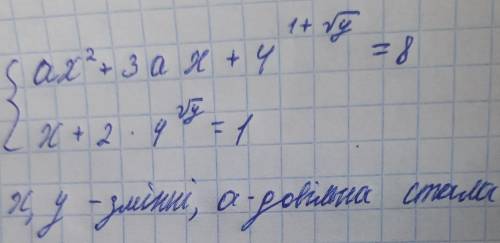 ax² + 3ax + 4^{1+√y} = 8
x + 2 · 4^{√y} = 1
x, y - змінні, a - довільна стала